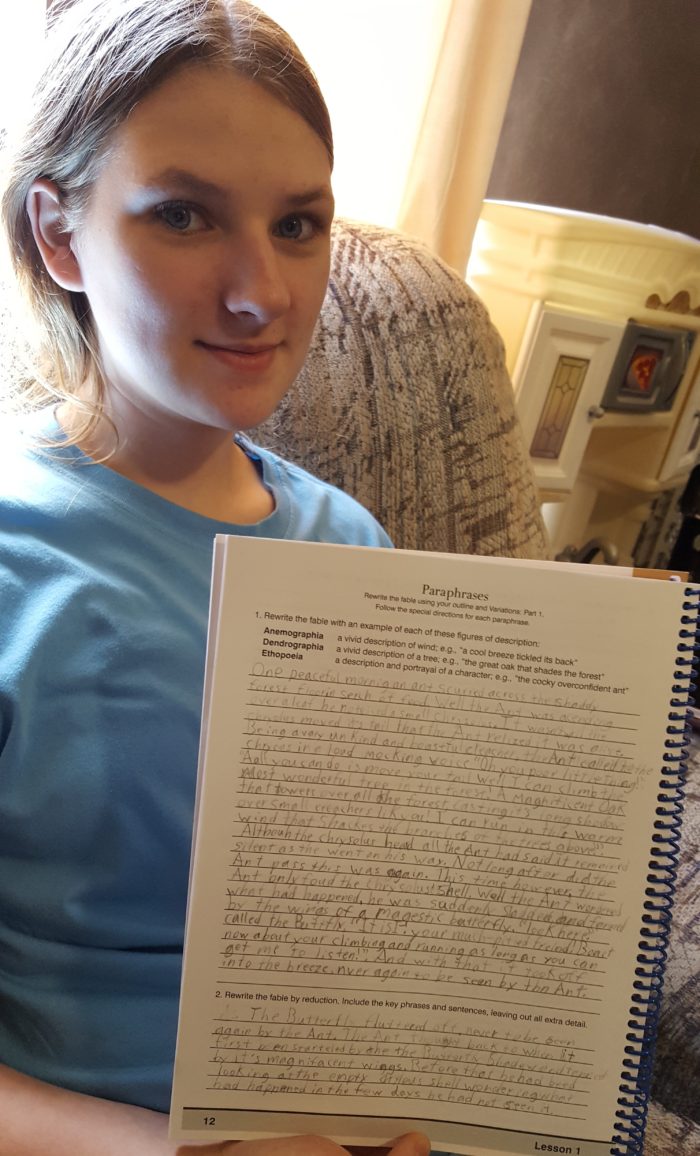 Paraphrases
Rewrite the fable using your outline and Variations: Part 1.
Follow the special directions for each paraphrase.
1. Rewrite the fable with an example of each of these figures of description:
Anemographia a vivid description of wind; e.g., "a cool breeze tickled its back"
Dendrographia a vivid description of a tree; e.g., "the great oak that shades the forest"
Ethopoeia a description and portrayal of a character; e.g., "the cocky overconfident ant"
One peaceful morning an ant scurred across the shaddy
forest floor in serch of food. Well the Ant was
over a leaf he noticed a small
moved its tail that the Ant relized it was alive.
Being a very unkind and boastful creacher, the Ant called to the
in a loud mocking voice "Oh you poor little thing!
all you can do is move your tail well I can climb the
most wonderful tree forest! A Magnificent Oak
that towers over all the forest casting its long shadow
over small creachers like you. I can run in this warm
wind that shackes the branches of the trees above"
Althouh the chrysolus head all the Ant had said it remained
silent as the went on his way. Not long after did the
Ant pass this was again. This time however, the
Ant only foud the chrysolus' shell. Well the Ant wondered
what had happened, he was suddenly shaded and
by the wings of a magestic butterfly. "look here"
called the "It is I, your much friend! Boast
now about your climbing and running as long as you can
get me to listen!" And with that it took off
into the breeze, nver again to be seen by the Ant.
2. Rewrite the fable by reduction. Include the key phrases and sentences, leaving out all extra detail.
The Butterfly off, never to be seen
again by the Ant. The Ant back to when it
first been the the Butterfly
by it's magnifacent wings. Before that he had
looking at the empty shell wondering what
had happened in the few days he had not seen it.
12
Lesson 1